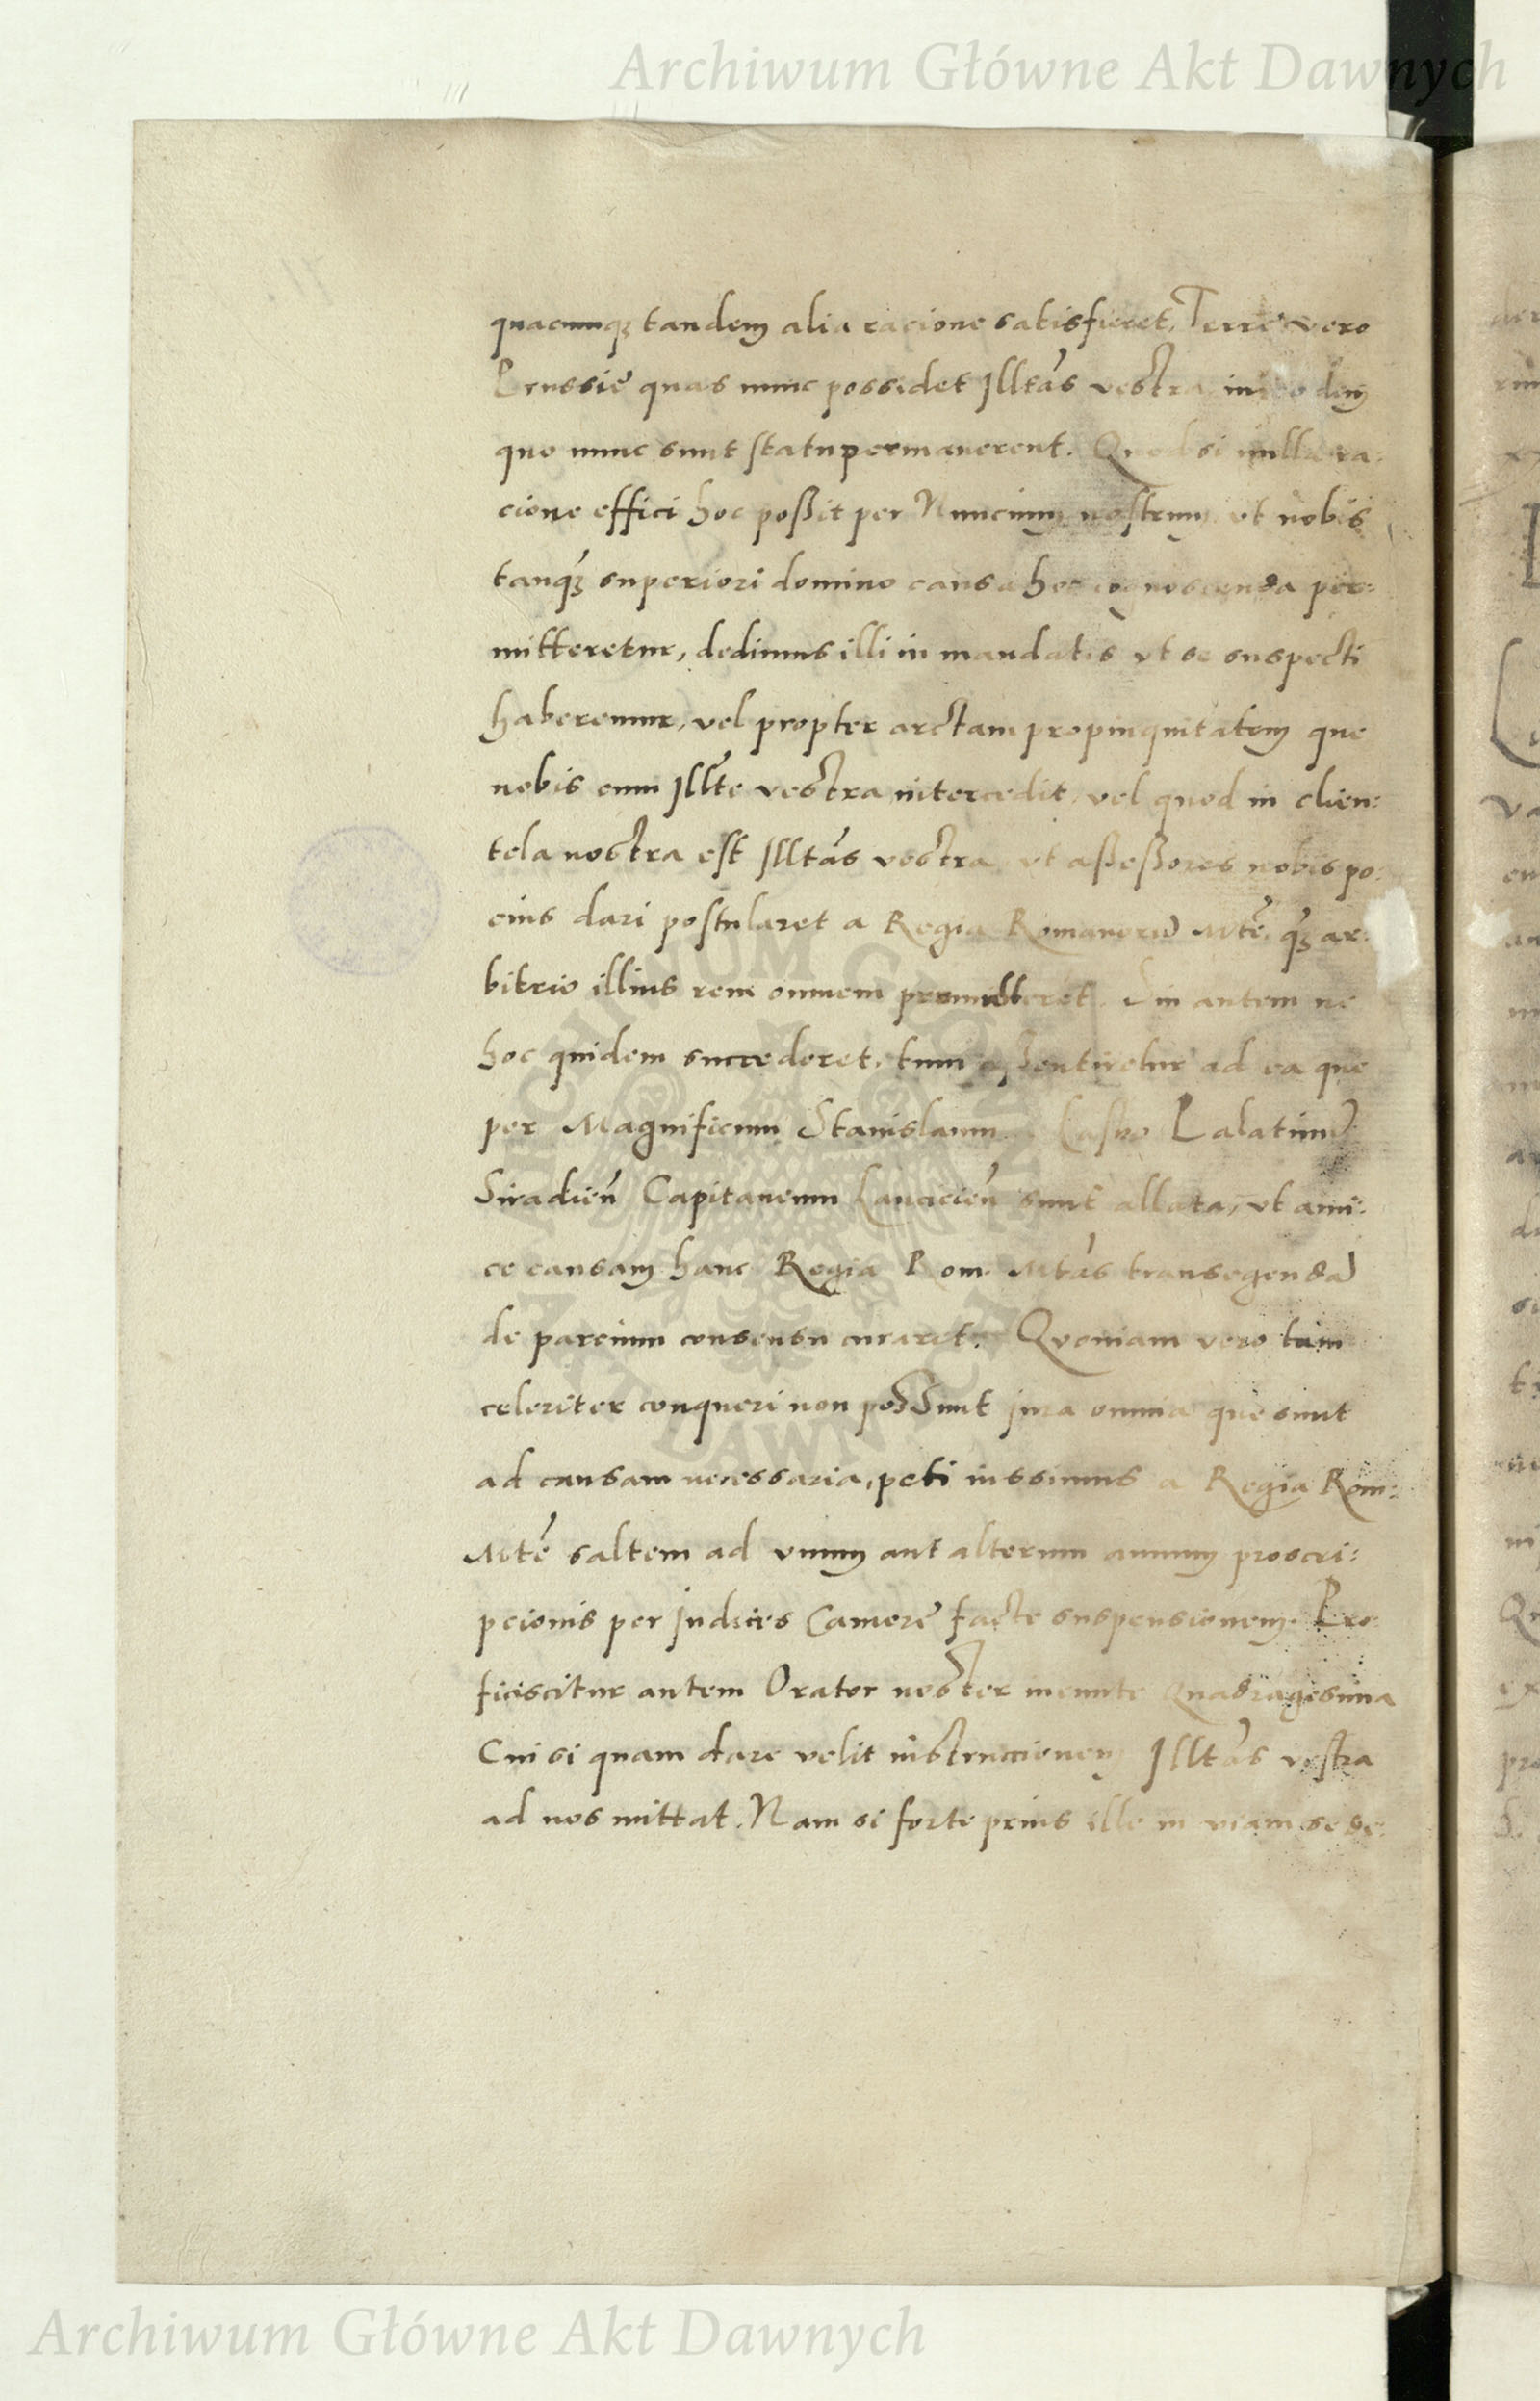 Archiwum Główne Akt Dawnych
quacumqꝫ tandem alia racione satisfieret. Terrę vero
Prussię quas nunc possidet Illtas vestra, in eodem
quo nunc sunt statu permanerent. Quod si nulla ra:
cione effici hoc poßit per Nuncium nostrum, vt nobis
tanqꝫ superiori domino causa hec cognoscenda per:
mitteretur, dedimus illi in mandatis vt se suspecti
haberemur, vel propter arctam propinquitatem que
nobis cum Illte vestra intercedit, vel quod in clien:
tela nostra est Illtas vestra, vt aßeßores nobis po:
cius dari postularet a Regia Romanorũ Mte, qꝫ ar:
bitrio illius rem omnem permitteret. Sin autem ne
hoc quidem succederet, tum assentiretur ad ea que
per Magnificum Stanislaum Lasko Palatinũ
Siradień Capitaneum Lancicień sunt allata, vt ami:
ce causam hanc Regia Rom. Mtas transegendã
de parcium consensu curaret. Quoniam vero tam
celeriter conqueri non possunt jura omnia que sunt
ad causam necessaria, peti iussimus a Regia Rom:
Mte saltem ad vnum aut alterum annum proscri:
pcionis per Judices Camerę facte suspensionem. Pro:
ficiscitur autem Orator noster ineunte Quadragesima
Cui si quam dare velit instruccionem Illtas vestra
ad nos mittat. Nam si forte prius ille in viam se de:
Archiwum Główne Akt Dawnych